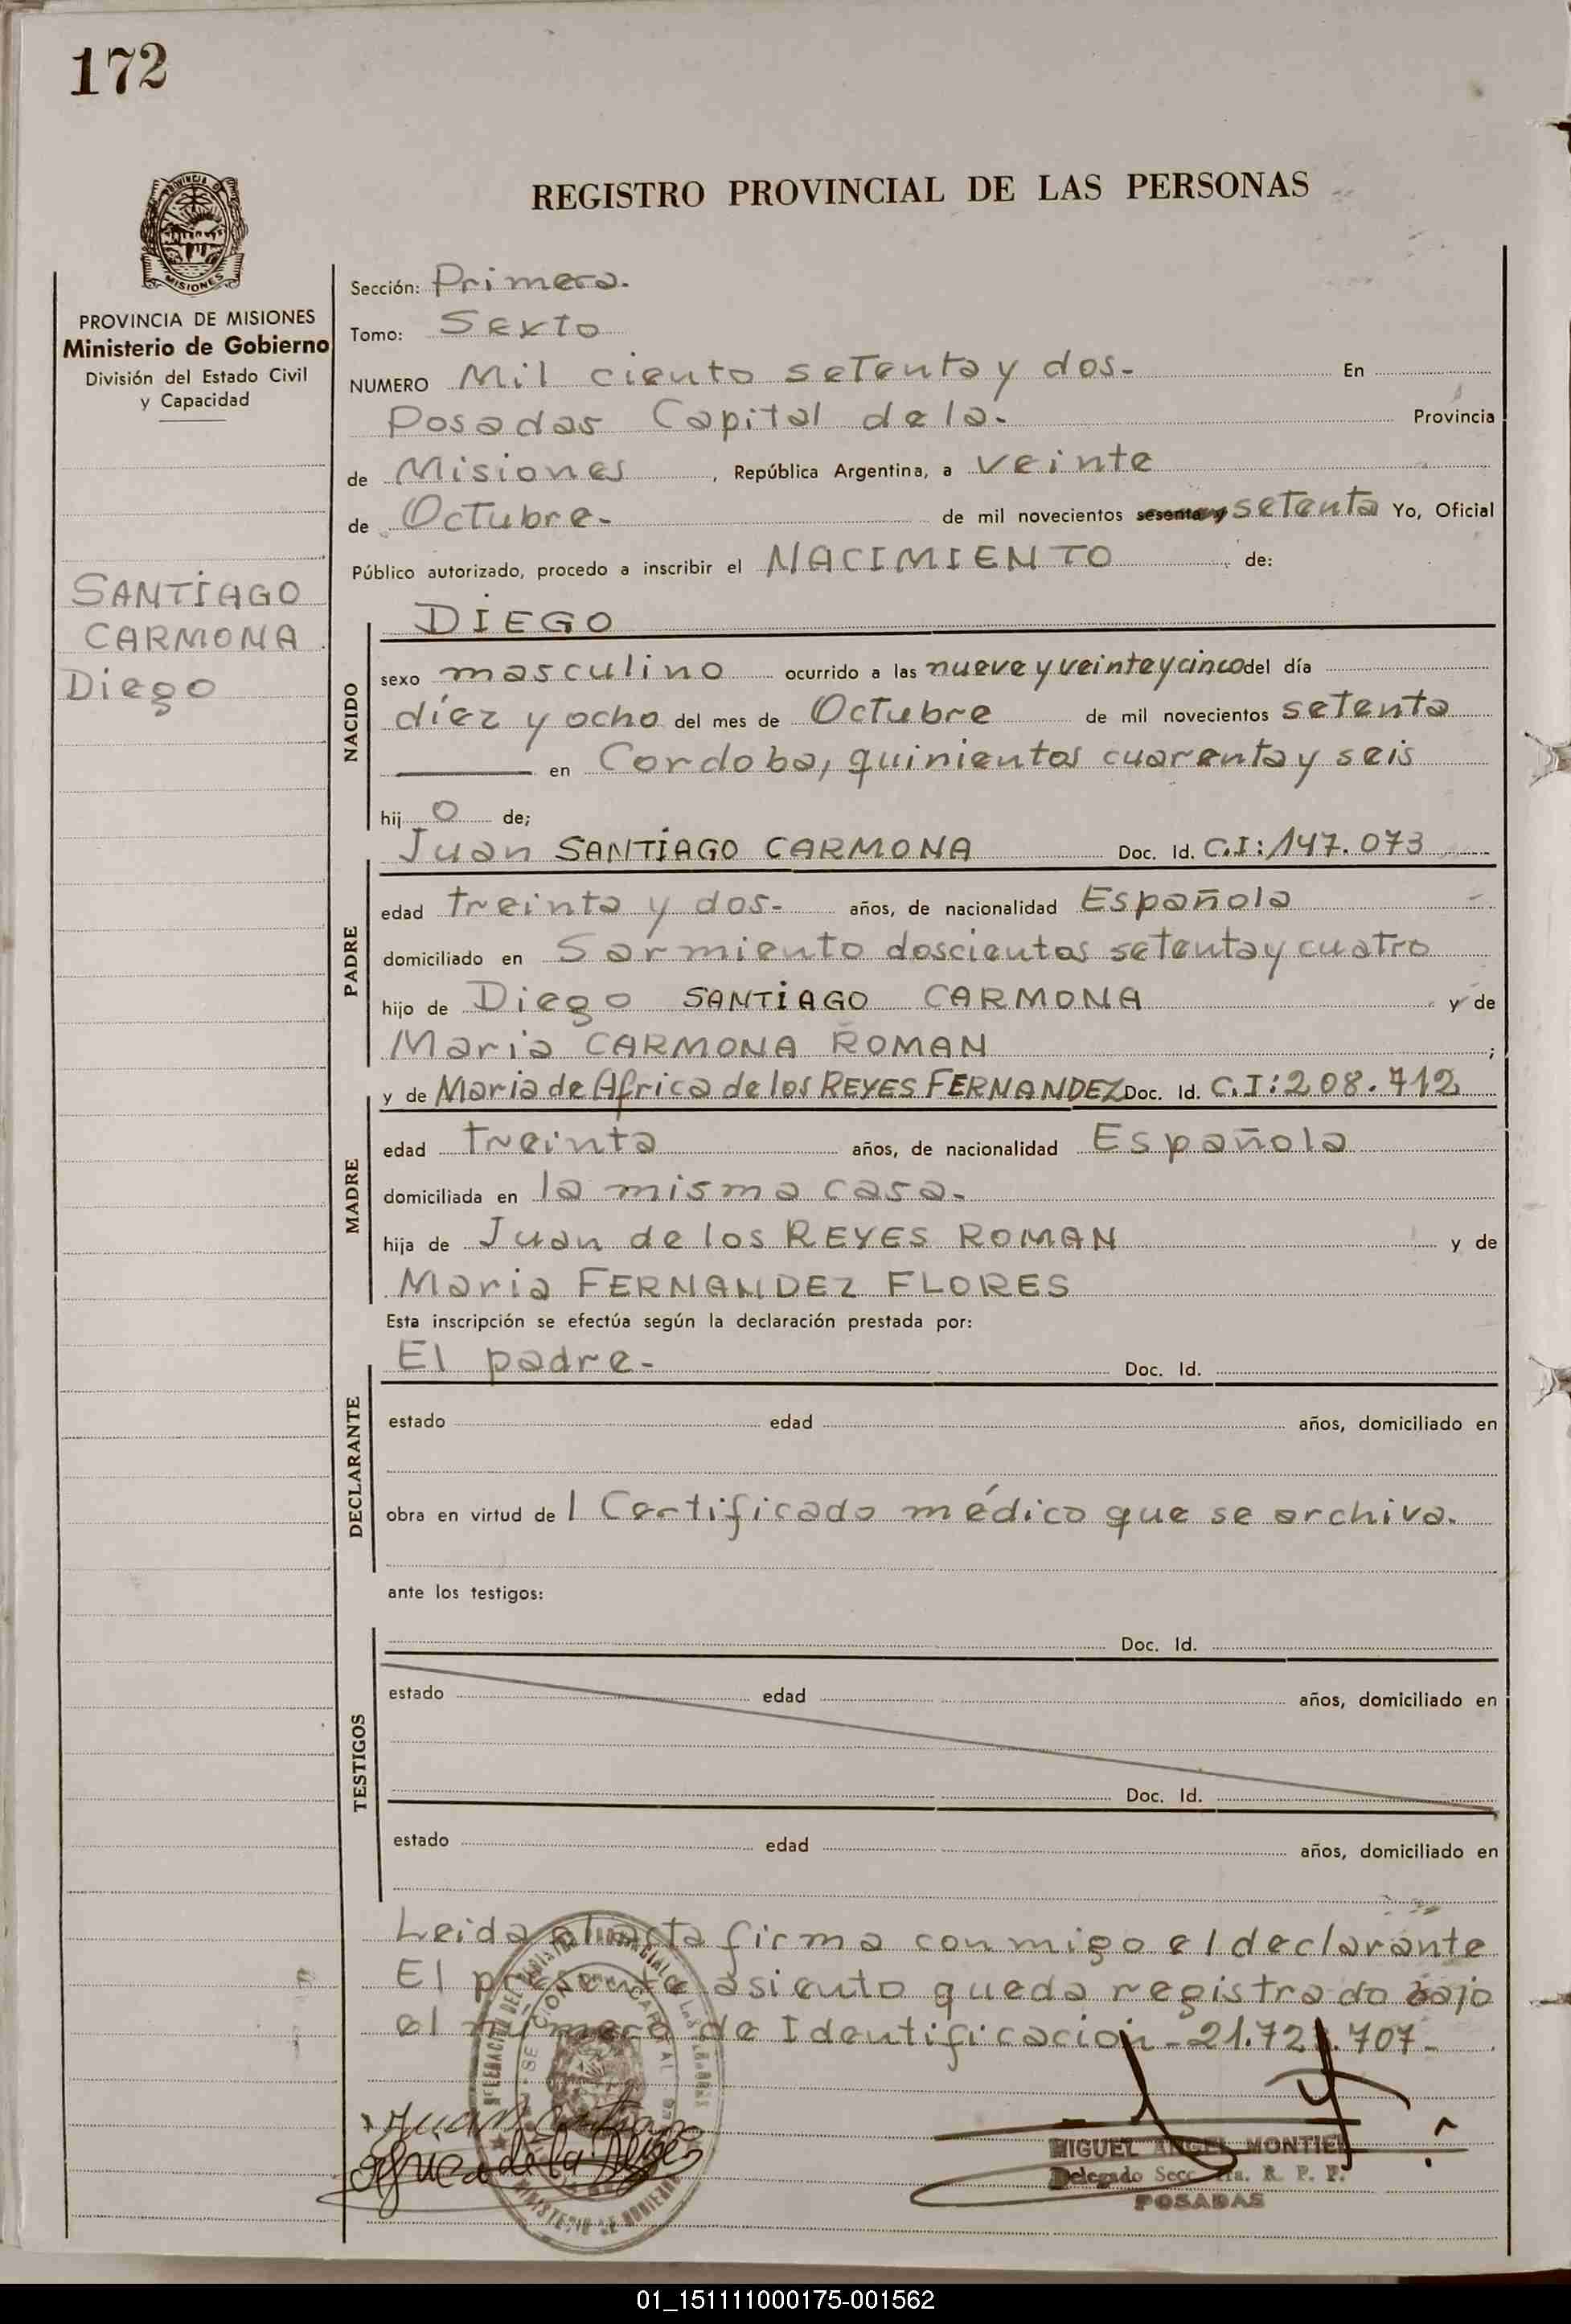 172
PROVINCIA DE MISIONES
Ministerio de Gobierno
División del Estado Civil
y Capacidad
SANTIAGO
CARMONA
Diego
REGISTRO PROVINCIAL DE LAS PERSONAS
Sección: Primera.
Tomo: Sexto
NUMERO Mil ciento setenta y dos- En
Posadas Capital de la- Provincia
de Misiones, República Argentina, a veinte
de Octubre- de mil novecientos sesenta y setenta Yo, Oficial
Público autorizado, procedo a inscribir el NACIMIENTO de:
DIEGO
NACIDO
sexo masculino ocurrido a las nueve y veinte y cinco del día
díez y ocho del mes de Octubre de mil novecientos setenta
en Cordoba, quinientos cuarenta y seis
hij o de;
Juan SANTIAGO CARMONA Doc. Id. C.I: 147.073
PADRE
edad treinta y dos- años, de nacionalidad Española
domiciliado en Sarmiento doscientos setenta y cuatro
hijo de Diego SANTIAGO CARMONA y de
Maria CARMONA ROMAN ;
y de Maria de Africa de los REYES FERNANDEZ Doc. Id. C.I: 208.712
MADRE
edad treinta años, de nacionalidad Española
domiciliada en la misma casa-
hija de Juan de los REYES ROMAN y de
Maria FERNANDEZ FLORES
Esta inscripción se efectúa según la declaración prestada por:
El padre- Doc. Id.
DECLARANTE
estado edad años, domiciliado en
obra en virtud de 1 Certificado médico que se archiva.
ante los testigos:
Doc. Id.
TESTIGOS
estado edad años, domiciliado en
Doc. Id.
estado edad años, domiciliado en
Leida el acta firma conmigo el declarante
El presente asiento queda registrado bajo
el número de Identificación - 21.72 .707-
Juan
MIGUEL ANGEL MONTIEL
Delegado Secc. 1ra. R. P. P.
POSADAS
01_151111000175-001562